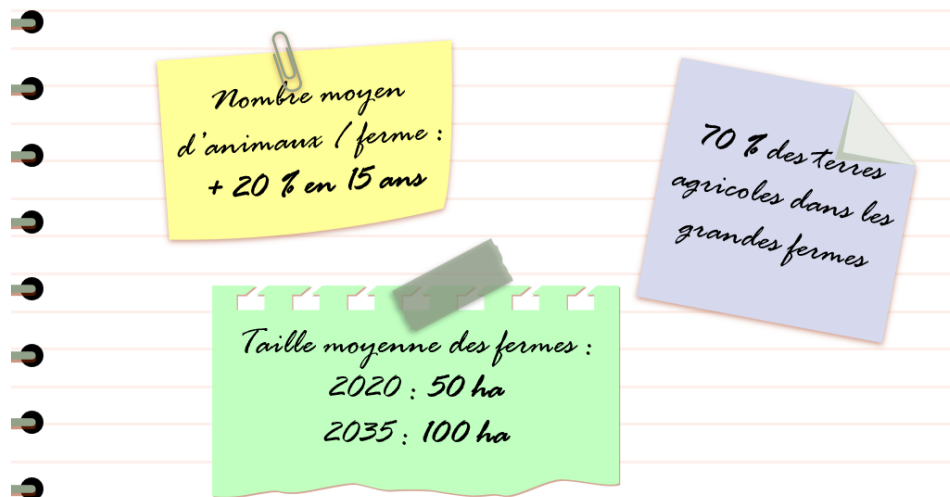 Nombre moyen
d'animaux / ferme :
+ 20 % en 15 ans
70 % des terres
agricoles dans les
grandes fermes
Taille moyenne des fermes :
2020 : 50 ha
2035 : 100 ha